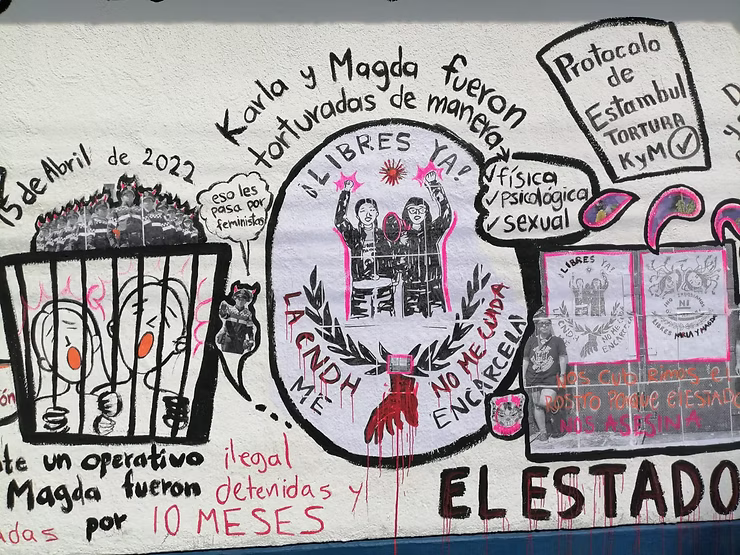 15 de Abril de 2022
eso les
pasa por
feministas
Karla y Magda fueron
torturadas de manera
¡LIBRES YA!
LA CNDH
NO ME CUIDA
ME
ENCARCELA
✓física
✓psicológica
✓sexual
Protocolo
de
Estambul
TORTURA
KyM ✓
¡LIBRES YA!
LA CNDH
NO ME CUIDA
ME
ENCARCELA
LIBRES KARLA Y MAGDA
NOS CUBRIMOS el
ROSTRO PORQUE EL ESTADO
NOS ASESINA
un operativo ilegal
Magda fueron detenidas y
por 10 MESES
EL ESTADO